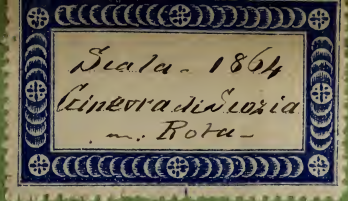 Scala - 1864
Ginevra di Scozia
m. Rota -